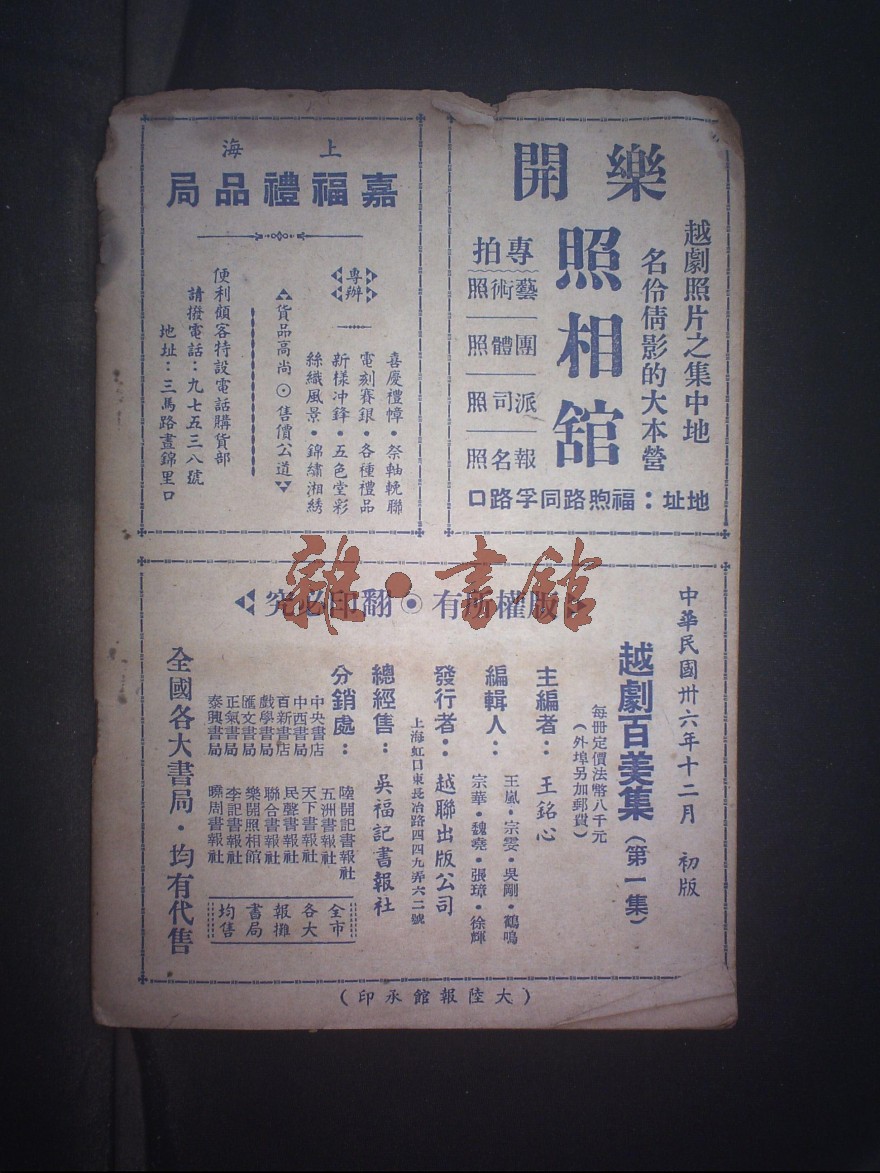 越劇照片之集中地
名伶倩影的大本營
樂開
照相舘
專拍
藝術照
團體照
派司照
報名照
地址：福煦路同孚路口
上海
嘉福禮品局
專辦
喜慶禮幛・祭軸輓聯
電刻賽銀・各種禮品
新樣冲鋒・五色堂彩
絲織風景・錦繡湘綉
貨品高尚⊙售價公道
便利顧客特設電話購貨部
請撥電話：九七五三八號
地址：三馬路晝錦里口
版權所有⊙翻印必究
中華民國卅六年十二月　初版
越劇百美集（第一集）
每冊定價法幣八千元
（外埠另加郵費）
主編者：王銘心
編輯人：
王嵐・宗雯・吳剛・鶴鳴
宗華・魏堯・張璋・徐輝
發行者：越聯出版公司
上海虹口東長治路四四九弄六二號
總經售：吳福記書報社
分銷處：
中央書店
中西書局
百新書店
戲學書局
匯文書局
正氣書局
泰興書局
陸開記書報社
五洲書報社
天下書報社
民聲書報社
聯合書報社
樂開照相館
李記書報社
曝周書報社
全市
各大
報攤
書局
均售
全國各大書局・均有代售
（大陸報館承印）
雜・書館